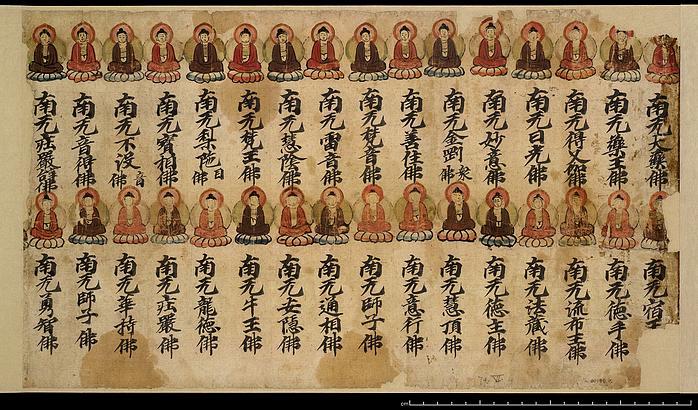 南无大藥佛
南无藥王佛
南无得叉伽佛
南无日光佛
南无妙意佛
南无金剛眾佛
南无善住佛
南无梵音佛
南无雷音佛
南无慧隆佛
南无梵王佛
南无梨陁目佛
南无寶相佛
南无不沒音佛
南无音得佛
南无莊嚴辭佛
南无宿王
南无德手佛
南无流布王佛
南无法藏佛
南无德主佛
南无慧頂佛
南无意行佛
南无師子佛
南无通相佛
南无安隱佛
南无牛王佛
南无龍德佛
南无莊嚴佛
南无華持佛
南无師子佛
南无勇智佛
cm